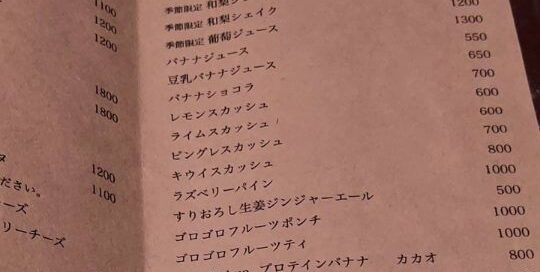 1100
1200
1200
1800
1800
1200
ださい。 1100
ーズ
リーチーズ
季節限定 和梨ジ
季節限定 和梨シェイク 1200
季節限定 葡萄ジュース 1300
バナナジュース 550
豆乳バナナジュース 650
バナナショコラ 700
レモンスカッシュ 600
ライムスカッシュ 600
ピングレスカッシュ 700
キウイスカッシュ 800
ラズベリーパイン 1000
すりおろし生姜ジンジャーエール 500
ゴロゴロフルーツポンチ 1000
ゴロゴロフルーツティ 1000
プロテインバナナ カカオ 800